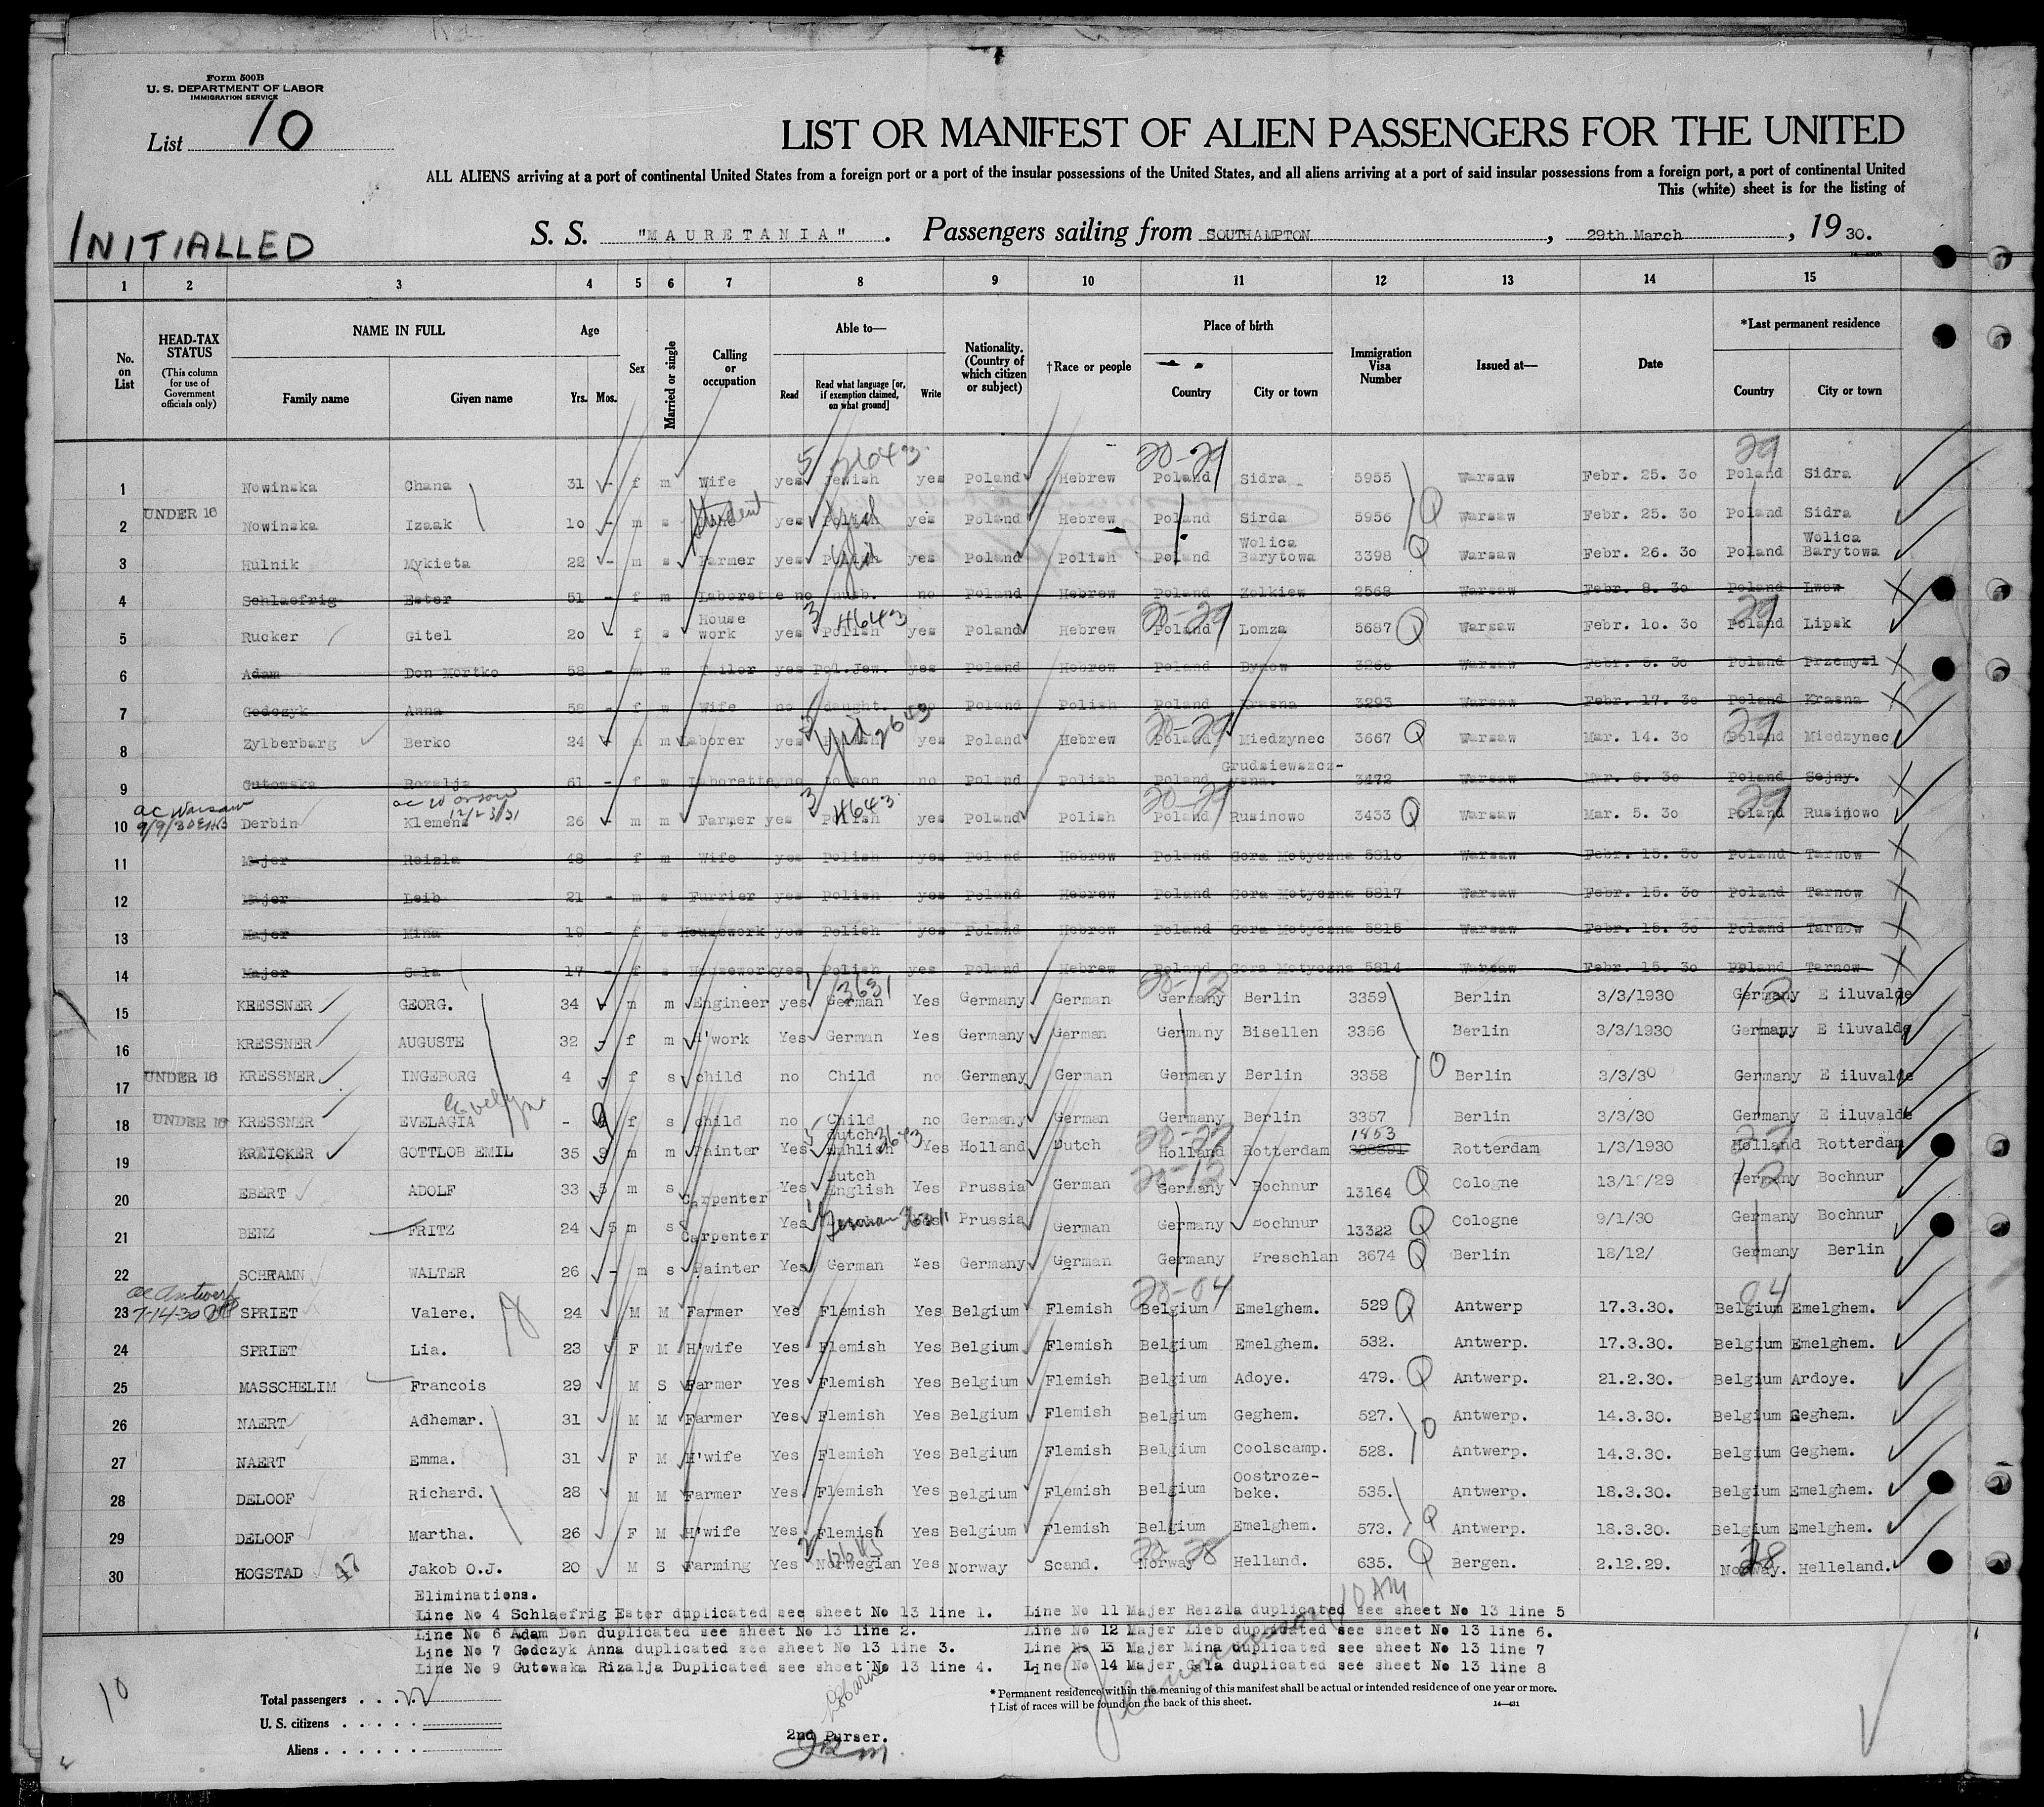 Form 500B
U. S. DEPARTMENT OF LABOR
IMMIGRATION SERVICE
List 10
LIST OR MANIFEST OF ALIEN PASSENGERS FOR THE UNITED
ALL ALIENS arriving at a port of continental United States from a foreign port or a port of the insular possessions of the United States, and all aliens arriving at a port of said insular possessions from a foreign port, a port of continental United
This (white) sheet is for the listing of
INITIALLED
S. S. "MAURETANIA". Passengers sailing from SOUTHAMPTON, 29th March, 1930.
1 2 3 4 5 6 7 8 9 10 11 12 13 14 15
No. on List
HEAD-TAX STATUS (This column for use of Government officials only)
NAME IN FULL Family name Given name
Age Yrs. Mos.
Sex
Married or single
Calling or occupation
Able to— Read Read what language [or, if exemption claimed, on what ground] Write
Nationality. (Country of which citizen or subject)
†Race or people
Place of birth Country City or town
Immigration Visa Number
Issued at—
Date
*Last permanent residence Country City or town
20-29 29
1 Nowinska Chana 31 - f m Wife yes Jewish yes Poland Hebrew Poland Sidra 5955 Warsaw Febr. 25. 30 Poland Sidra
2 UNDER 16 Nowinska Izaak 10 - m s Student yes Polish yes Poland Hebrew Poland Sirda 5956 Warsaw Febr. 25. 30 Poland Sidra
3 Hulnik Mykieta 22 - m s Farmer yes Polish yes Poland Polish Poland Wolica Barytowa 3398 Warsaw Febr. 26. 30 Poland Wolica Barytowa
4 Schlaefrig Ester 51 - f m Laborette no husb. no Poland Hebrew Poland Zolkiew 2568 Warsaw Febr. 8. 30 Poland Lwow
5 Rucker Gitel 20 - f s House work yes Polish yes Poland Hebrew Poland Lomza 5687 Warsaw Febr. 10. 30 Poland Lipsk
6 Adam Don Mortko 58 - m m Tailor yes Pol.Jew. yes Poland Hebrew Poland Dynow 3260 Warsaw Febr. 5. 30 Poland Przemysl
7 Godczyk Anna 58 - f m Wife no daught. no Poland Polish Poland Krasna 3293 Warsaw Febr. 17. 30 Poland Krasna
8 Zylberbarg Berko 24 - m m Laborer yes Yid yes Poland Hebrew Poland Miedzynec 3667 Warsaw Mar. 14. 30 Poland Miedzynec
9 Gutowska Rozalja 61 - f m Laborette no to son no Poland Polish Poland Grudsiewszcz-ysna. 3472 Warsaw Mar. 6. 30 Poland Sejny.
ac Warsaw ac Warsaw 12/23/31
10 Derbin Klemens 26 - m m Farmer yes Polish yes Poland Polish Poland Rusinowo 3433 Warsaw Mar. 5. 30 Poland Rusinowo
11 Majer Reizla 48 - f m Wife yes Polish yes Poland Hebrew Poland Gora Motyczna 5816 Warsaw Febr. 15. 30 Poland Tarnow
12 Majer Leib 21 - m s Furrier yes Polish yes Poland Hebrew Poland Gora Motyczna 5817 Warsaw Febr. 15. 30 Poland Tarnow
13 Majer Mina 19 - f s Housework yes Polish yes Poland Hebrew Poland Gora Motyczna 5815 Warsaw Febr. 15. 30 Poland Tarnow
14 Majer Gala 17 - f s Housework yes Polish yes Poland Hebrew Poland Gora Motyczna 5814 Warsaw Febr. 15. 30 Poland Tarnow
15 KRESSNER GEORG. 34 - m m Engineer yes German Yes Germany German Germany Berlin 3359 Berlin 3/3/1930 Germany E iluvalde
16 KRESSNER AUGUSTE 32 - f m H'work Yes German Yes Germany German Germany Bisellen 3356 Berlin 3/3/1930 Germany E iluvalde
17 UNDER 16 KRESSNER INGEBORG 4 - f s child no Child no Germany German Germany Berlin 3358 Berlin 3/3/30 Germany E iluvalde
18 UNDER 16 KRESSNER EVELAGIA Evelyn - f s child no Child no Germany German Germany Berlin 3357 Berlin 3/3/30 Germany E iluvalde
19 KREICKER GOTTLOB EMIL 35 9 m m Painter Yes Dutch Enhlish Yes Holland Dutch Holland Rotterdam 1853 Rotterdam 1/3/1930 Holland Rotterdam
20 EBERT ADOLF 33 5 m s Carpenter Yes Dutch English Yes Prussia German Germany Bochnur 13164 Cologne 13/12/29 Germany Bochnur
21 BENZ FRITZ 24 5 m s Carpenter Yes German Yes Prussia German Germany Bochnur 13322 Cologne 9/1/30 Germany Bochnur
22 SCHRAMN WALTER 26 - m s Painter Yes German Yes Germany German Germany Preschlan 3674 Berlin 18/12/ Germany Berlin
ac Antwerp 7-14-30
23 SPRIET Valere. 24 M M Farmer Yes Flemish Yes Belgium Flemish Belgium Emelghem. 529 Antwerp 17.3.30. Belgium Emelghem.
24 SPRIET Lia. 23 F M H'wife Yes Flemish Yes Belgium Flemish Belgium Emelghem. 532. Antwerp. 17.3.30. Belgium Emelghem.
25 MASSCHELIM Francois 29 M S Farmer Yes Flemish Yes Belgium Flemish Belgium Adoye. 479. Antwerp. 21.2.30. Belgium Ardoye.
26 NAERT Adhemar. 31 M M Farmer Yes Flemish Yes Belgium Flemish Belgium Geghem. 527. Antwerp. 14.3.30. Belgium Geghem.
27 NAERT Emma. 31 F M H'wife Yes Flemish Yes Belgium Flemish Belgium Coolscamp. 528. Antwerp. 14.3.30. Belgium Geghem.
28 DELOOF Richard. 28 M M Farmer Yes Flemish Yes Belgium Flemish Belgium Oostroze-beke. 535. Antwerp. 18.3.30. Belgium Emelghem.
29 DELOOF Martha. 26 F M H'wife Yes Flemish Yes Belgium Flemish Belgium Emelghem. 573. Antwerp. 18.3.30. Belgium Emelghem.
30 HOGSTAD Jakob O.J. 20 M S Farming Yes Norwegian Yes Norway Scand. Norway Helland. 635. Bergen. 2.12.29. Norway. Helleland.
Eliminations.
Line No 4 Schlaefrig Ester duplicated see sheet No 13 line 1. Line No 11 Majer Reizla duplicated see sheet No 13 line 5
Line No 6 Adam Don duplicated see sheet No 13 line 2. Line No 12 Majer Lieb duplicated see sheet No 13 line 6.
Line No 7 Godczyk Anna duplicated see sheet No 13 line 3. Line No 13 Majer Mina duplicated see sheet No 13 line 7
Line No 9 Gutowska Rizalja Duplicated see sheet No 13 line 4. Line No 14 Majer Gala duplicated see sheet No 13 line 8
10
Total passengers . . . 22
U. S. citizens . . . . .
Aliens . . . . . .
2nd Purser.
* Permanent residence within the meaning of this manifest shall be actual or intended residence of one year or more.
† List of races will be found on the back of this sheet.
14—431